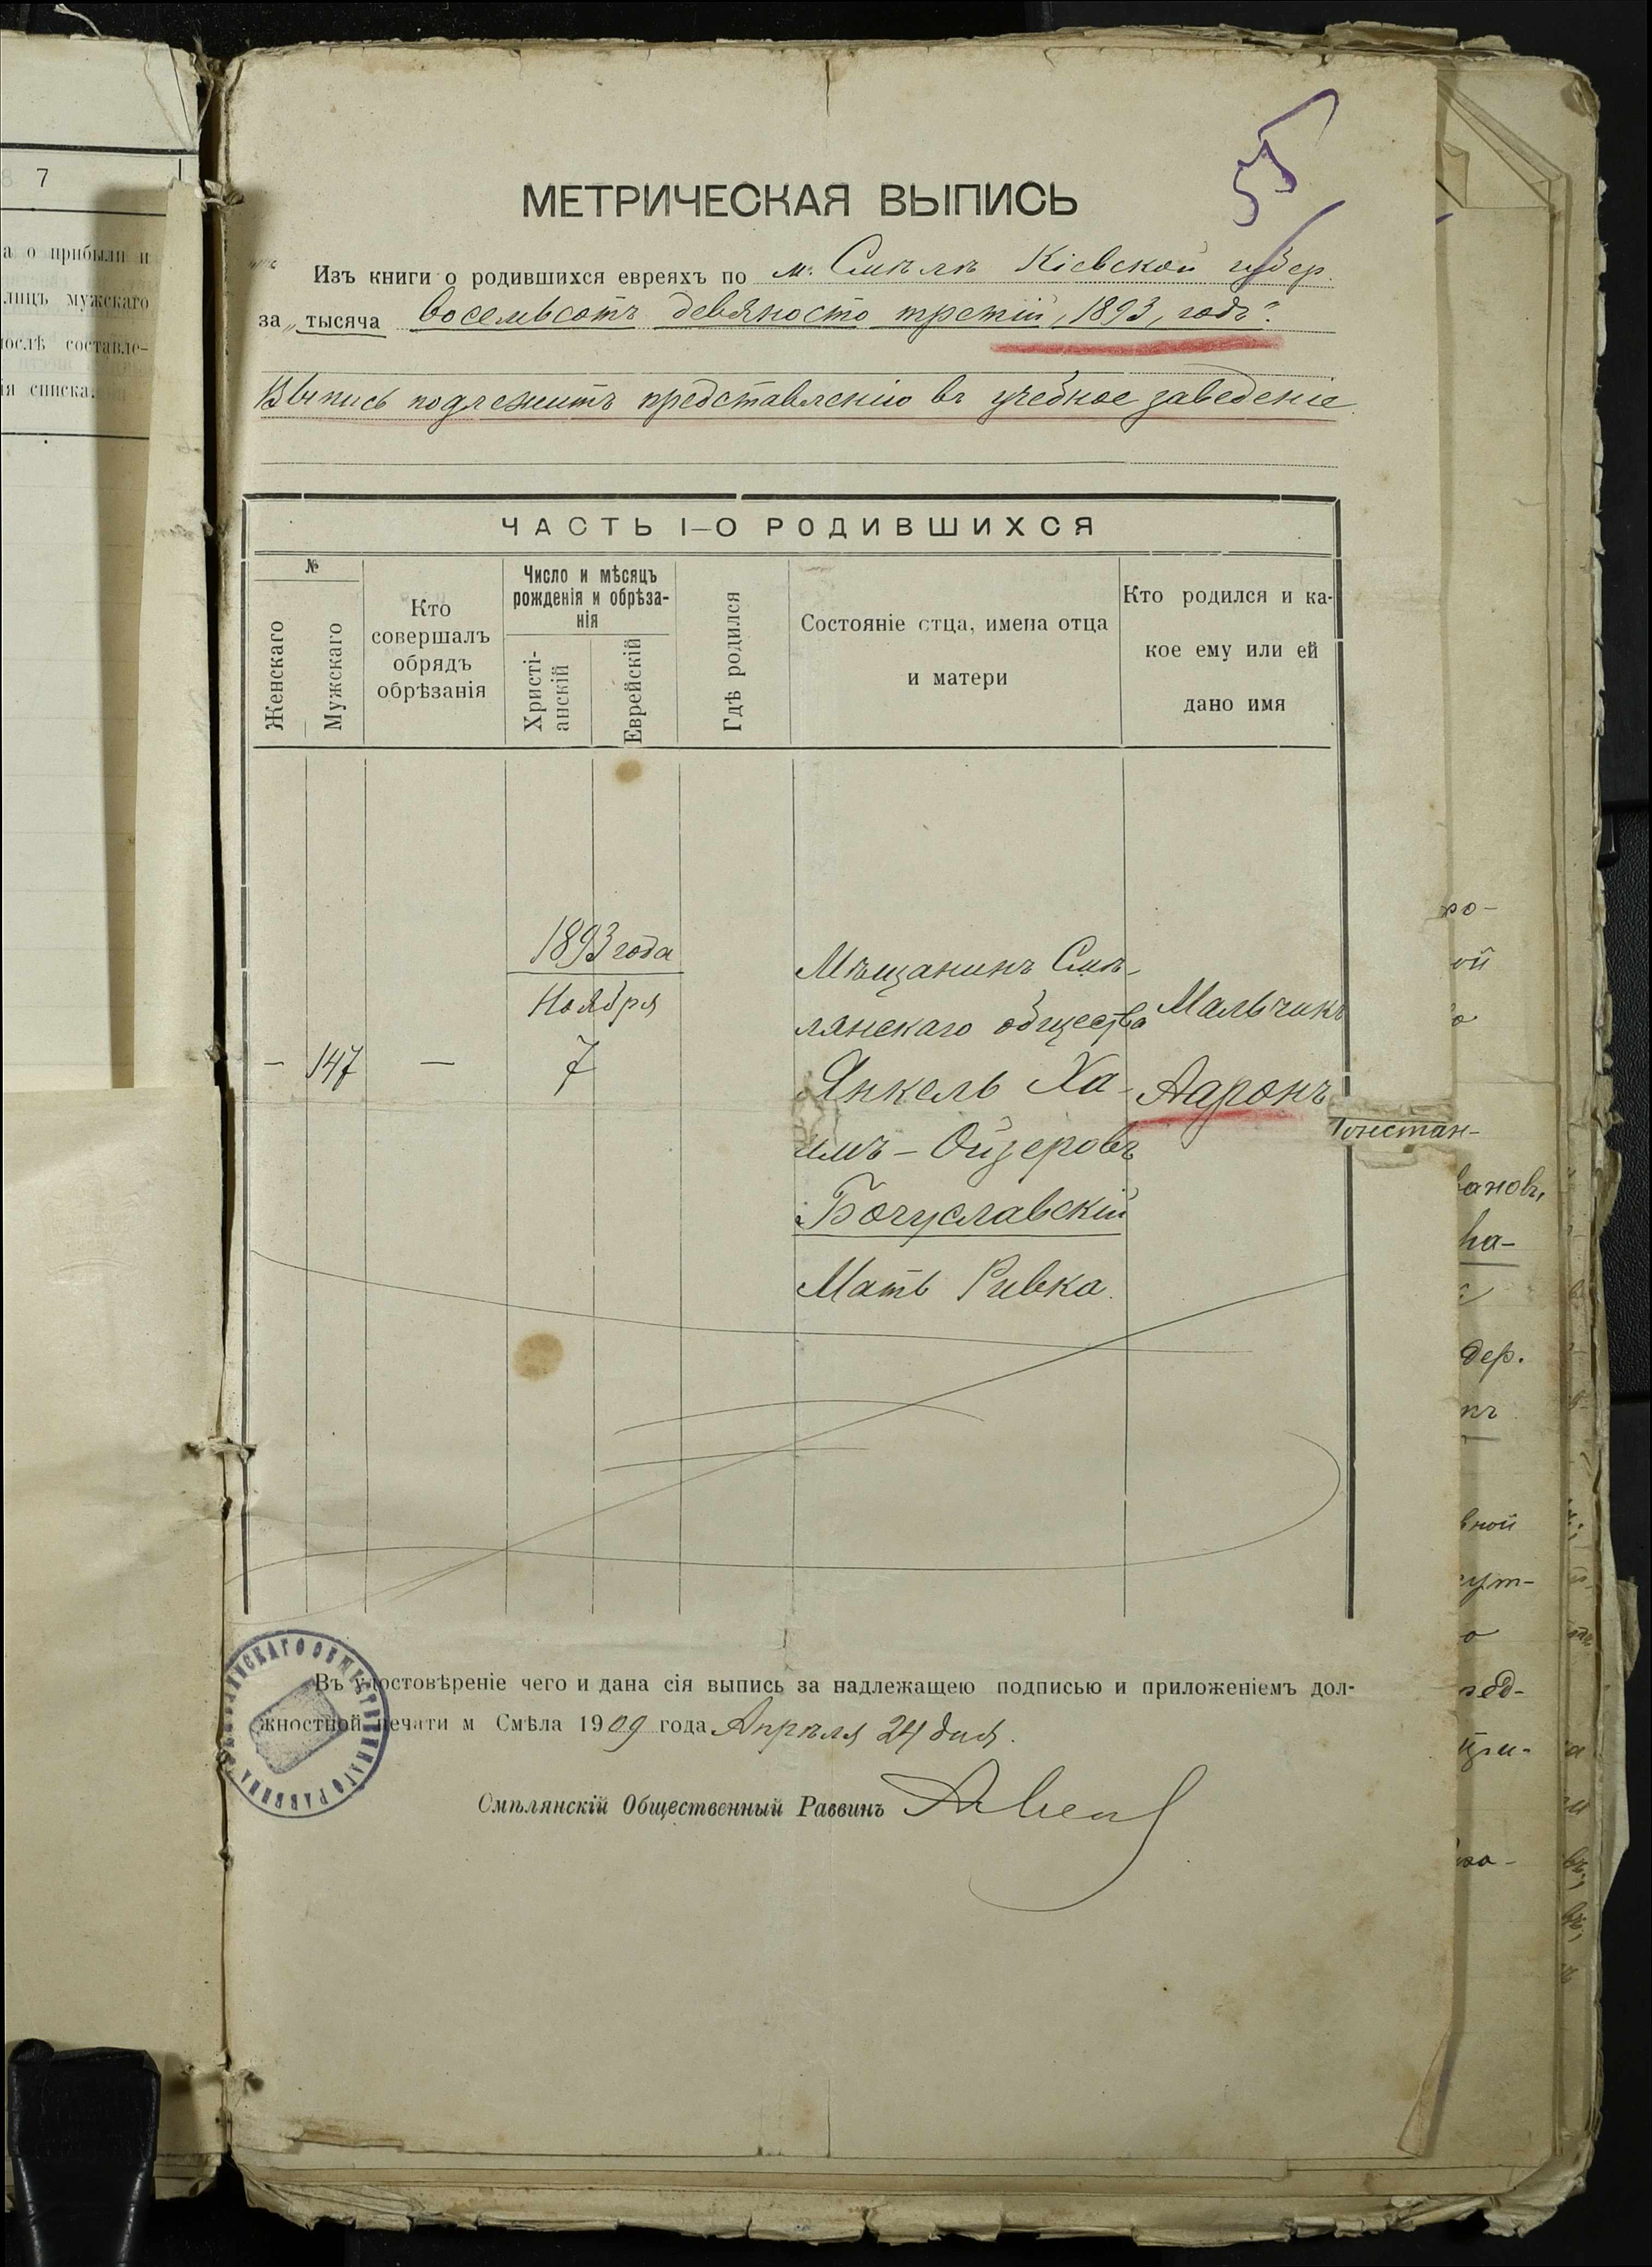 7
а о прибыли и
лицъ мужскаго
послѣ составле-
ія списка.
55
МЕТРИЧЕСКАЯ ВЫПИСЬ
Изъ книги о родившихся евреяхъ по м. Смѣлѣ Кіевской губер.
за „тысяча восемьсотъ девяносто третій, 1893, годъ“.
Выпись подлежитъ представленію въ учебное заведеніе
ЧАСТЬ I–О РОДИВШИХСЯ
№
Женскаго
Мужскаго
Кто
совершалъ
обрядъ
обрѣзанія
Число и мѣсяцъ
рожденія и обрѣза-
нія
Христі-
анскій
Еврейскій
Гдѣ родился
Состояніе отца, имена отца
и матери
Кто родился и ка-
кое ему или ей
дано имя
– 147 –
1893 года
Ноября
7
Мѣщанинъ Смѣ-
лянскаго общества
Янкель Ха-
имъ – Ойзеровъ
Богуславскій
Мать Ривка.
Мальчикъ
Ааронъ
Въ удостовѣреніе чего и дана сія выпись за надлежащею подписью и приложеніемъ дол-
жностной печати м Смѣла 1909 года Апрѣля 24 дня.
Смѣлянскій Общественный Раввинъ
СМѢЛЯНСКАГО ОБЩЕСТВЕННАГО РАВВИНА
ро-
ой
Констан-
ановъ,
ha-
дер.
вной